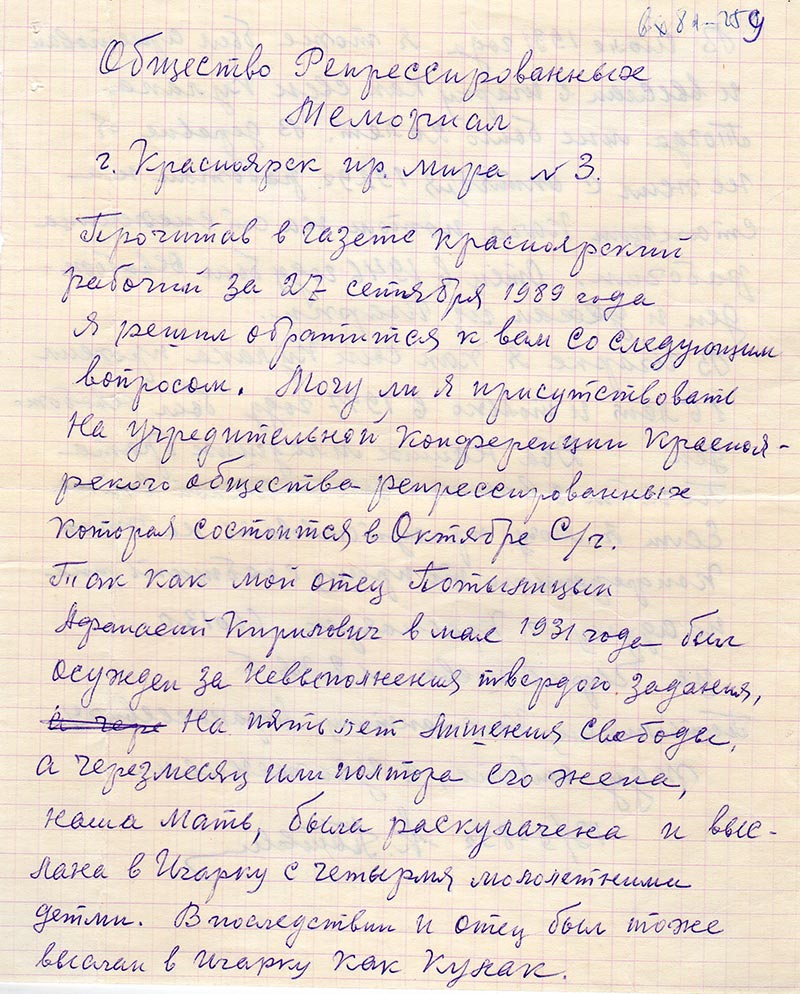 вх 81-259
Общество Репрессированных
Мемориал
г. Красноярск пр. мира № 3.
Прочитав в газете красноярский
рабочий за 27 сетября 1989 года
я решил обратится к вам со следующим
вопросом. Могу ли я присутствовать
на учредительной конференции Красноя-
рского общества репрессированных
которая состоится в Октябре С/г.
Так как мой отец Потылицын
Афанасий Кирилович в мае 1931 года был
осужден за невыполнения твердого задания,
а чере на пять лет лишения свободы,
а через месяц или полтора его жена,
наша мать, была раскулачена и выс-
лана в Игарку с четырмя мололетними
детми. В последствии и отец был тоже
выслан в Игарку как Кулак.